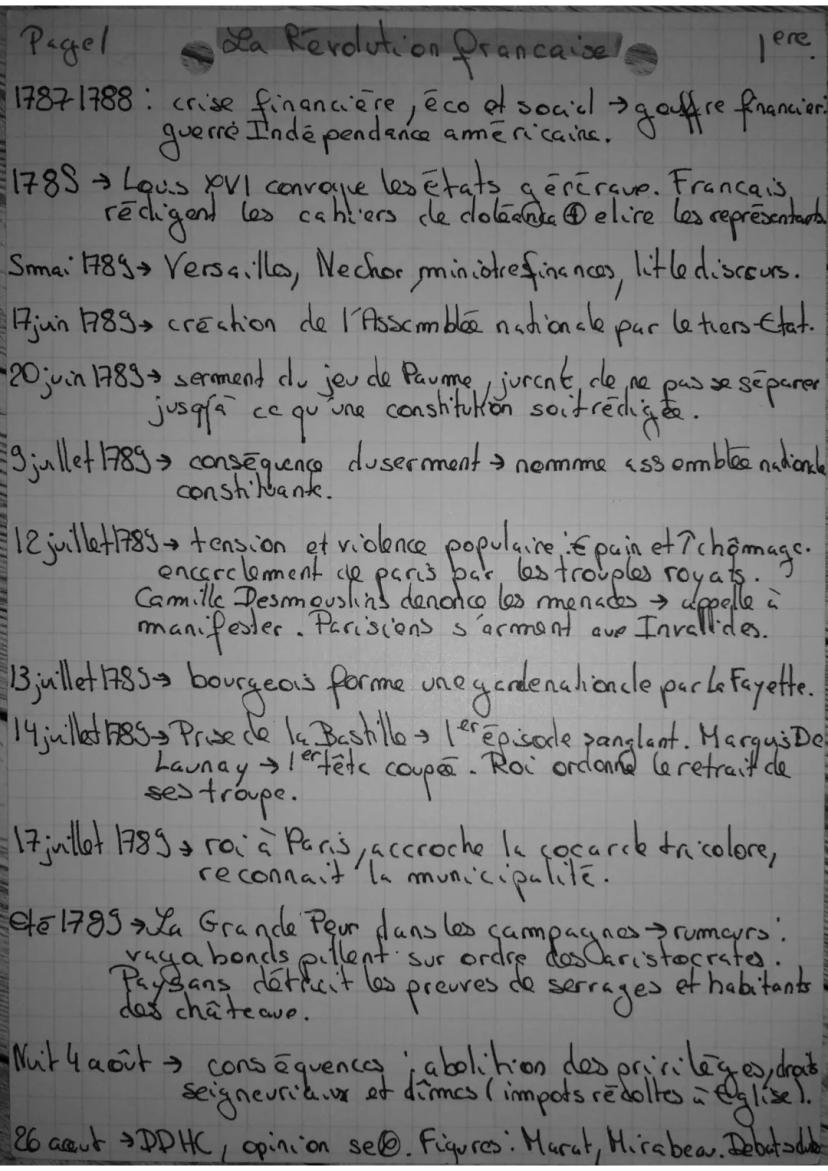 Page 1 La Révolution francaise 1ere.
1787 1788 : crise financière, éco et social → gouffre financier:
guerre Indépendance américaine.
1789 → Louis XVI convoque les états généraux. Francais
rédigent les cahiers de doléances ⊕ elire les représentants
5 mai 1789 → Versailles, Necker ministre finances, lit le discours.
17 juin 1789 → création de l'Assemblée nationale par le tiers-Etat.
20 juin 1789 → serment du jeu de Paume, jurent de ne pas se séparer
jusqu'à ce qu'une constitution soit rédigée.
9 juillet 1789 → conséquence du serment → nomme assemblée nationale
constituante.
12 juillet 1789 → tension et violence populaire : € pain et ↑ chômage.
encerclement de paris par les trouples royals.
Camille Desmouslins denonce les menaces → appelle à
manifester. Parisiens s'arment aux Invallides.
13 juillet 1789 → bourgeois forme une garde nationale par La Fayette.
14 juillet 1789 → Prise de la Bastille → 1er épisode sanglant. Marquis De
Launay → 1er tête coupée. Roi ordonne le retrait de
ses troupe.
17 juillet 1789 → roi à Paris, accroche la cocarde tricolore,
reconnait la municipalité.
eté 1789 → La Grande Peur dans les campagnes → rumeurs :
vagabonds pillent sur ordre des aristocrates.
Paysans détruit les preuves de serrages et habitants
des châteaux.
Nuit 4 août → conséquences : abolition des privilèges, droits
seigneuriaux et dîmes (impots récoltes à Eglise).
26 aout → DDHC, opinion se. Figures : Marat, Mirabeau. Debats